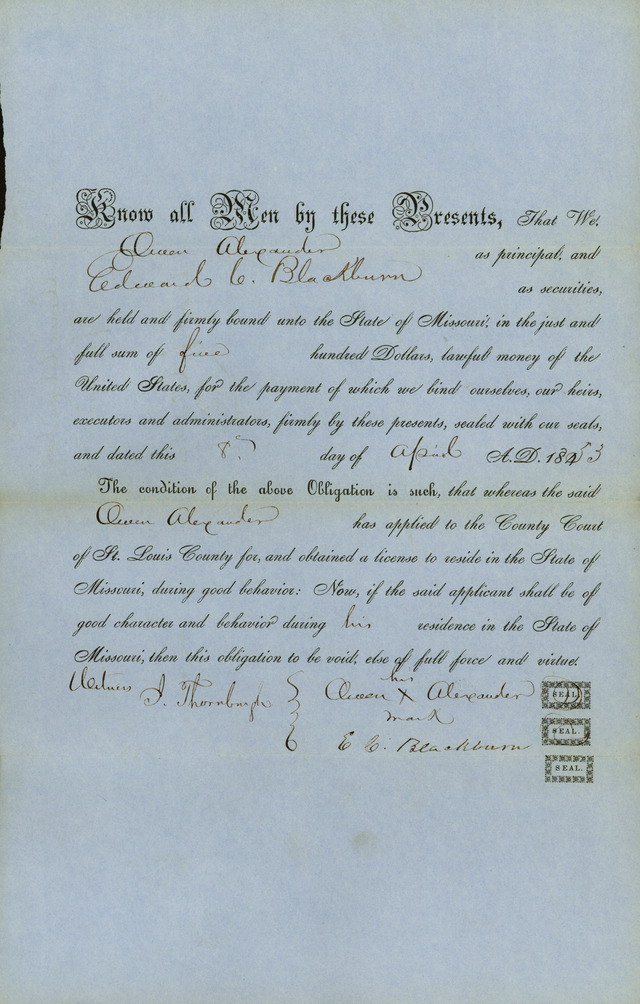 Know all Men by these Presents, That We,
Owen Alexander as principal, and
Edward C. Blackburn as securities,
are held and firmly bound unto the State of Missouri, in the just and
full sum of five hundred Dollars, lawful money of the
United States, for the payment of which we bind ourselves, our heirs,
executors and administrators, firmly by these presents, sealed with our seals,
and dated this 8 day of April A.D. 1853
The condition of the above Obligation is such, that whereas the said
Owen Alexander has applied to the County Court
of St. Louis County for, and obtained a license to reside in the State of
Missouri, during good behavior: Now, if the said applicant shall be of
good character and behavior during his residence in the State of
Missouri, then this obligation to be void, else of full force and virtue.
his
Witness J. Thornburgh Owen X Alexander SEAL.
mark
E C. Blackburn SEAL.
SEAL.